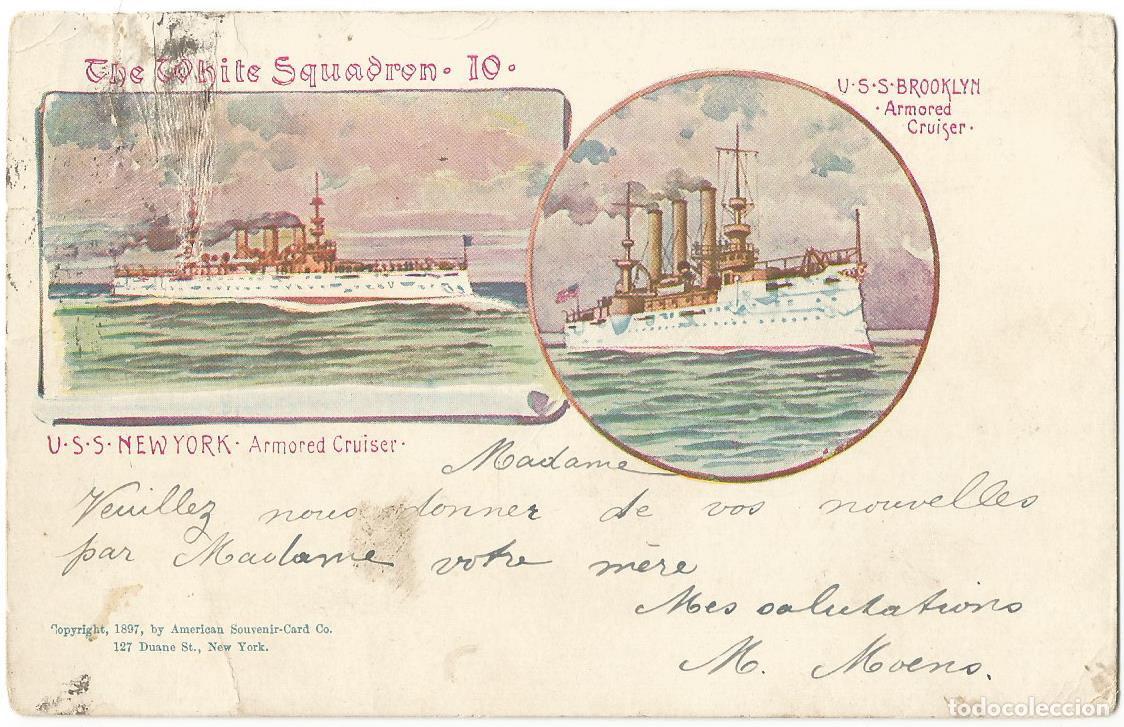 The White Squadron · 10 ·
U·S·S·BROOKLYN
· Armored
Cruiser ·
U·S·S· NEW YORK · Armored Cruiser ·
Madame
Veuillez nous donner de vos nouvelles
par Madame votre mère
Mes salutations
M. Moens.
Copyright, 1897, by American Souvenir-Card Co.
127 Duane St., New York.
todocoleccion